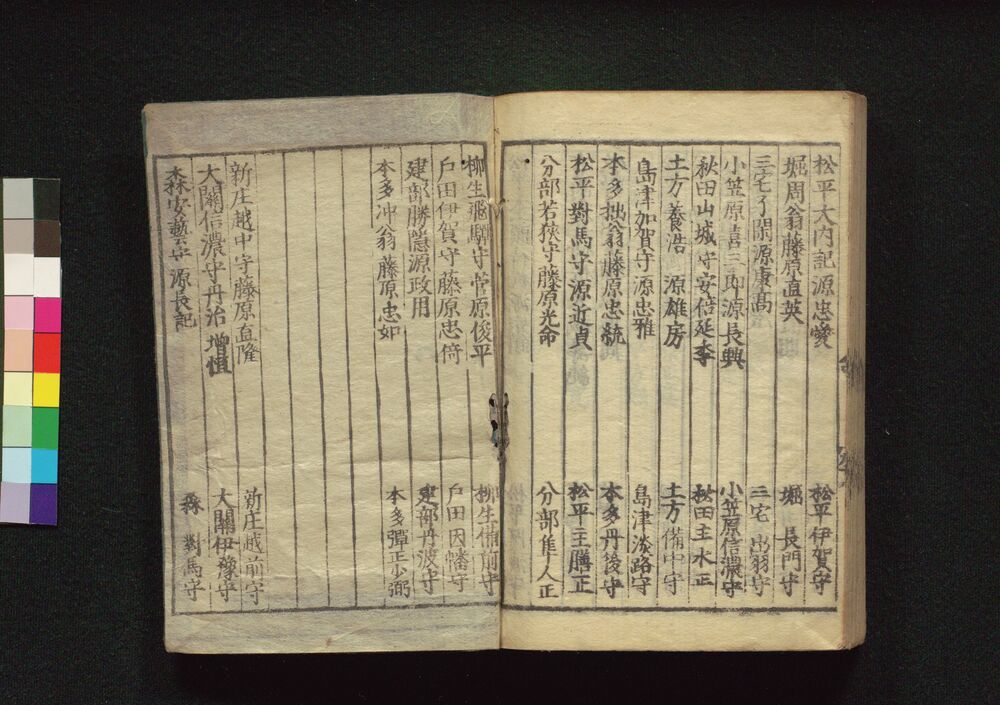 松平大内記源忠愛 松平伊賀守
堀周翁藤原直英 堀 長門守
三宅了閑源康高 三宅出羽守
小笠原喜三郎源長興 小笠原信濃守
秋田山城守安倍延季 秋田主水正
土方養浩 源雄房 土方備中守
島津加賀守源忠雅 島津淡路守
本多拙翁藤原忠統 本多丹後守
松平對馬守源近貞 松平主膳正
分部若狹守藤原光命 分部隼人正
柳生飛騨守菅原俊平 柳生備前守
戸田伊賀守藤原忠倚 戸田因幡守
建部勝隠源政用 建部丹波守
本多冲翁藤原忠如 本多彈正少弼
新庄越中守藤原直隆 新庄越前守
大關信濃守丹治増恒 大關伊豫守
森安藝守源長記 森 對馬守